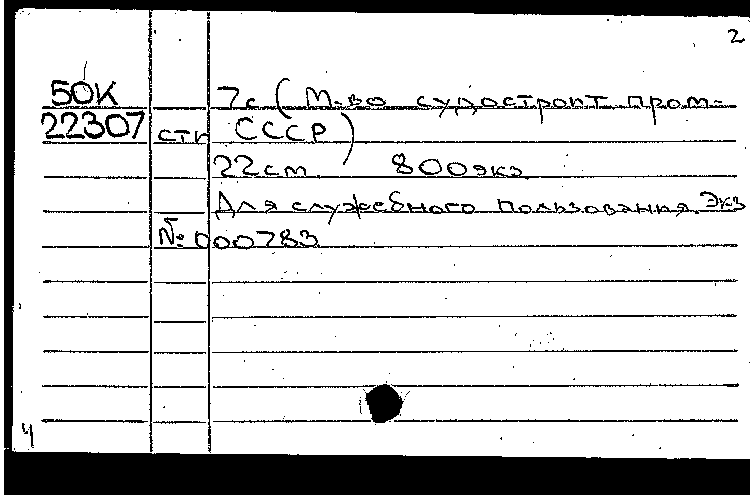 2
50К 7с (М-во судостроит пром-
22307 сти СССР)
22см 800экз
Для служебного пользования. Экз
№ 000783
4